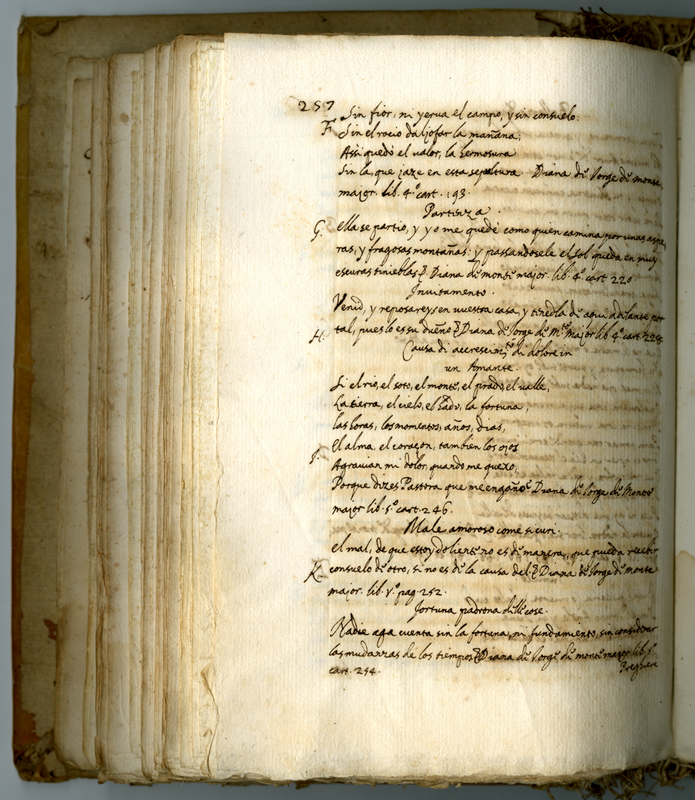 257
Sin flor, ni yerua el campo, y sin consuelo:
F. Sin el rocio d'aljofar la mañana,
Assi quedò el valor, la hermosura
Sin la, que jaze en esta sepultura. Diana di Jorge de monte
maior. lib. 4.º cart. 193.
Partenza.
G. ella se partio, y yo me quede como quien camina por unas aspe,
ras, y fragosas montañas: y passandosele el sol queda en muy
escuras tinieblas Diana di monte major. lib. 4.º cart. 220.
Inuitamento.
Venid, y reposareys en vuestra casa, y tenedla de aqui adelante por
H. tal, pues lo es su dueño Diana di Jorge di Mte major lib. 4.º cart.
Causa di accrescim.to di dolore in
un Amante.
Si el rio, el soto, el monte, el prado, el valle,
La tierra, el cielo, el hado, la fortuna,
las horas, los momentos, años, dias,
J. El alma, el coraçon, tambien los ojos
Agrauian mi dolor, quando me quexo,
Porque dizes Pastora que me engaño? Diana di Jorge di Monte
major lib. 5.º cart. 246.
Male amoroso come si curi.
el mal, de que estoy doliente no es de manera, que pueda recebir
K. consuelo de otro, si no es de la causa del Diana di Jorge di monte
major. lib. V.º pag. 252.
fortuna padrona delle cose.
Nadie aga cuenta sin la fortuna, ni fundamento, sin considerar
las mudanzas de los tiempos Diana di Jorge di monte major lib. 5.º
cart. 254.